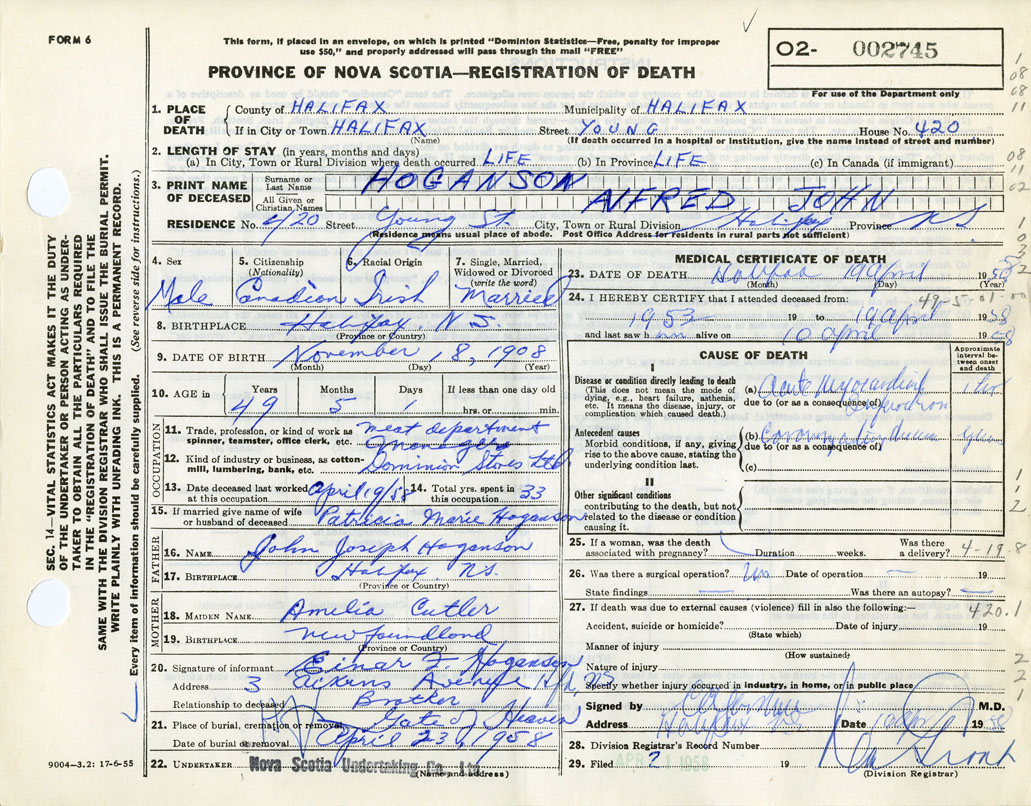 FORM 6
This form, if placed in an envelope, on which is printed "Dominion Statistics—Free, penalty for improper
use $50," and properly addressed will pass through the mail "FREE"
PROVINCE OF NOVA SCOTIA—REGISTRATION OF DEATH
02- 002745
For use of the Department only
1. PLACE OF DEATH
County of HALIFAX Municipality of HALIFAX
If in City or Town HALIFAX Street YOUNG House No. 420
(Name) (If death occurred in a hospital or institution, give the name instead of street and number)
2. LENGTH OF STAY (in years, months and days)
(a) In City, Town or Rural Division where death occurred LIFE (b) In Province LIFE (c) In Canada (if immigrant)
3. PRINT NAME OF DECEASED
Surname or Last Name HOGANSON
All Given or Christian Names ALFRED JOHN
RESIDENCE No. 420 Street Young St. City, Town or Rural Division Halifax Province N.S.
(Residence means usual place of abode. Post Office Address for residents in rural parts not sufficient)
4. Sex Male
5. Citizenship (Nationality) Canadian
6. Racial Origin Irish
7. Single, Married, Widowed or Divorced (write the word) Married
8. BIRTHPLACE Halifax, N.S.
(Province or Country)
9. DATE OF BIRTH November 18, 1908
(Month) (Day) (Year)
10. AGE in Years 49 Months 5 Days 1 If less than one day old hrs. or min.
OCCUPATION
11. Trade, profession, or kind of work as spinner, teamster, office clerk, etc. meat department manager
12. Kind of industry or business, as cotton-mill, lumbering, bank, etc. Dominion Stores Ltd
13. Date deceased last worked at this occupation April 19/58
14. Total yrs. spent in this occupation 33
15. If married give name of wife or husband of deceased Patricia Marie Hoganson
FATHER
16. NAME John Joseph Hoganson
17. BIRTHPLACE Halifax, N.S.
(Province or Country)
MOTHER
18. MAIDEN NAME Amelia Cutler
19. BIRTHPLACE Newfoundland
(Province or Country)
20. Signature of informant Einar F Hoganson
Address 3 Aikens Avenue Hfx, NS
Relationship to deceased Brother
21. Place of burial, cremation or removal Gate of Heaven
Date of burial or removal April 23, 1958
22. UNDERTAKER Nova Scotia Undertaking Co. Ltd.
(Name and address)
9004—3.2: 17-6-55
MEDICAL CERTIFICATE OF DEATH
23. DATE OF DEATH 19 April 1958
(Month) (Day) (Year)
49-5-01
24. I HEREBY CERTIFY that I attended deceased from:
1953 19 to 19 April 1958
and last saw h alive on 10 April 1958
CAUSE OF DEATH
Approximate interval between onset and death
I
Disease or condition directly leading to death
(This does not mean the mode of dying, e.g., heart failure, asthenia, etc. It means the disease, injury, or complication which caused death.)
(a) Acute Myocardial
due to (or as a consequence of)
Antecedent causes
Morbid conditions, if any, giving rise to the above cause, stating the underlying condition last.
(b) Coronary
due to (or as a consequence of)
(c)
II
Other significant conditions
contributing to the death, but not related to the disease or condition causing it.
25. If a woman, was the death associated with pregnancy? Duration weeks. Was there a delivery? 4-19-8
26. Was there a surgical operation? Date of operation — 19
State findings — Was there an autopsy? —
27. If death was due to external causes (violence) fill in also the following:— 420.1
Accident, suicide or homicide? Date of injury 19
(State which)
Manner of injury
(How sustained)
Nature of injury
Specify whether injury occurred in industry, in home, or in public place
Signed by M.D.
Address Halifax Date 1958
28. Division Registrar's Record Number
29. Filed APR 21 1958 19
(Division Registrar)
SEC. 14—VITAL STATISTICS ACT MAKES IT THE DUTY
OF THE UNDERTAKER OR PERSON ACTING AS UNDER-
TAKER TO OBTAIN ALL THE PARTICULARS REQUIRED
IN THE "REGISTRATION OF DEATH" AND TO FILE THE
SAME WITH THE DIVISION REGISTRAR WHO SHALL ISSUE THE BURIAL PERMIT.
WRITE PLAINLY WITH UNFADING INK. THIS IS A PERMANENT RECORD.
Every item of information should be carefully supplied. (See reverse side for instructions.)